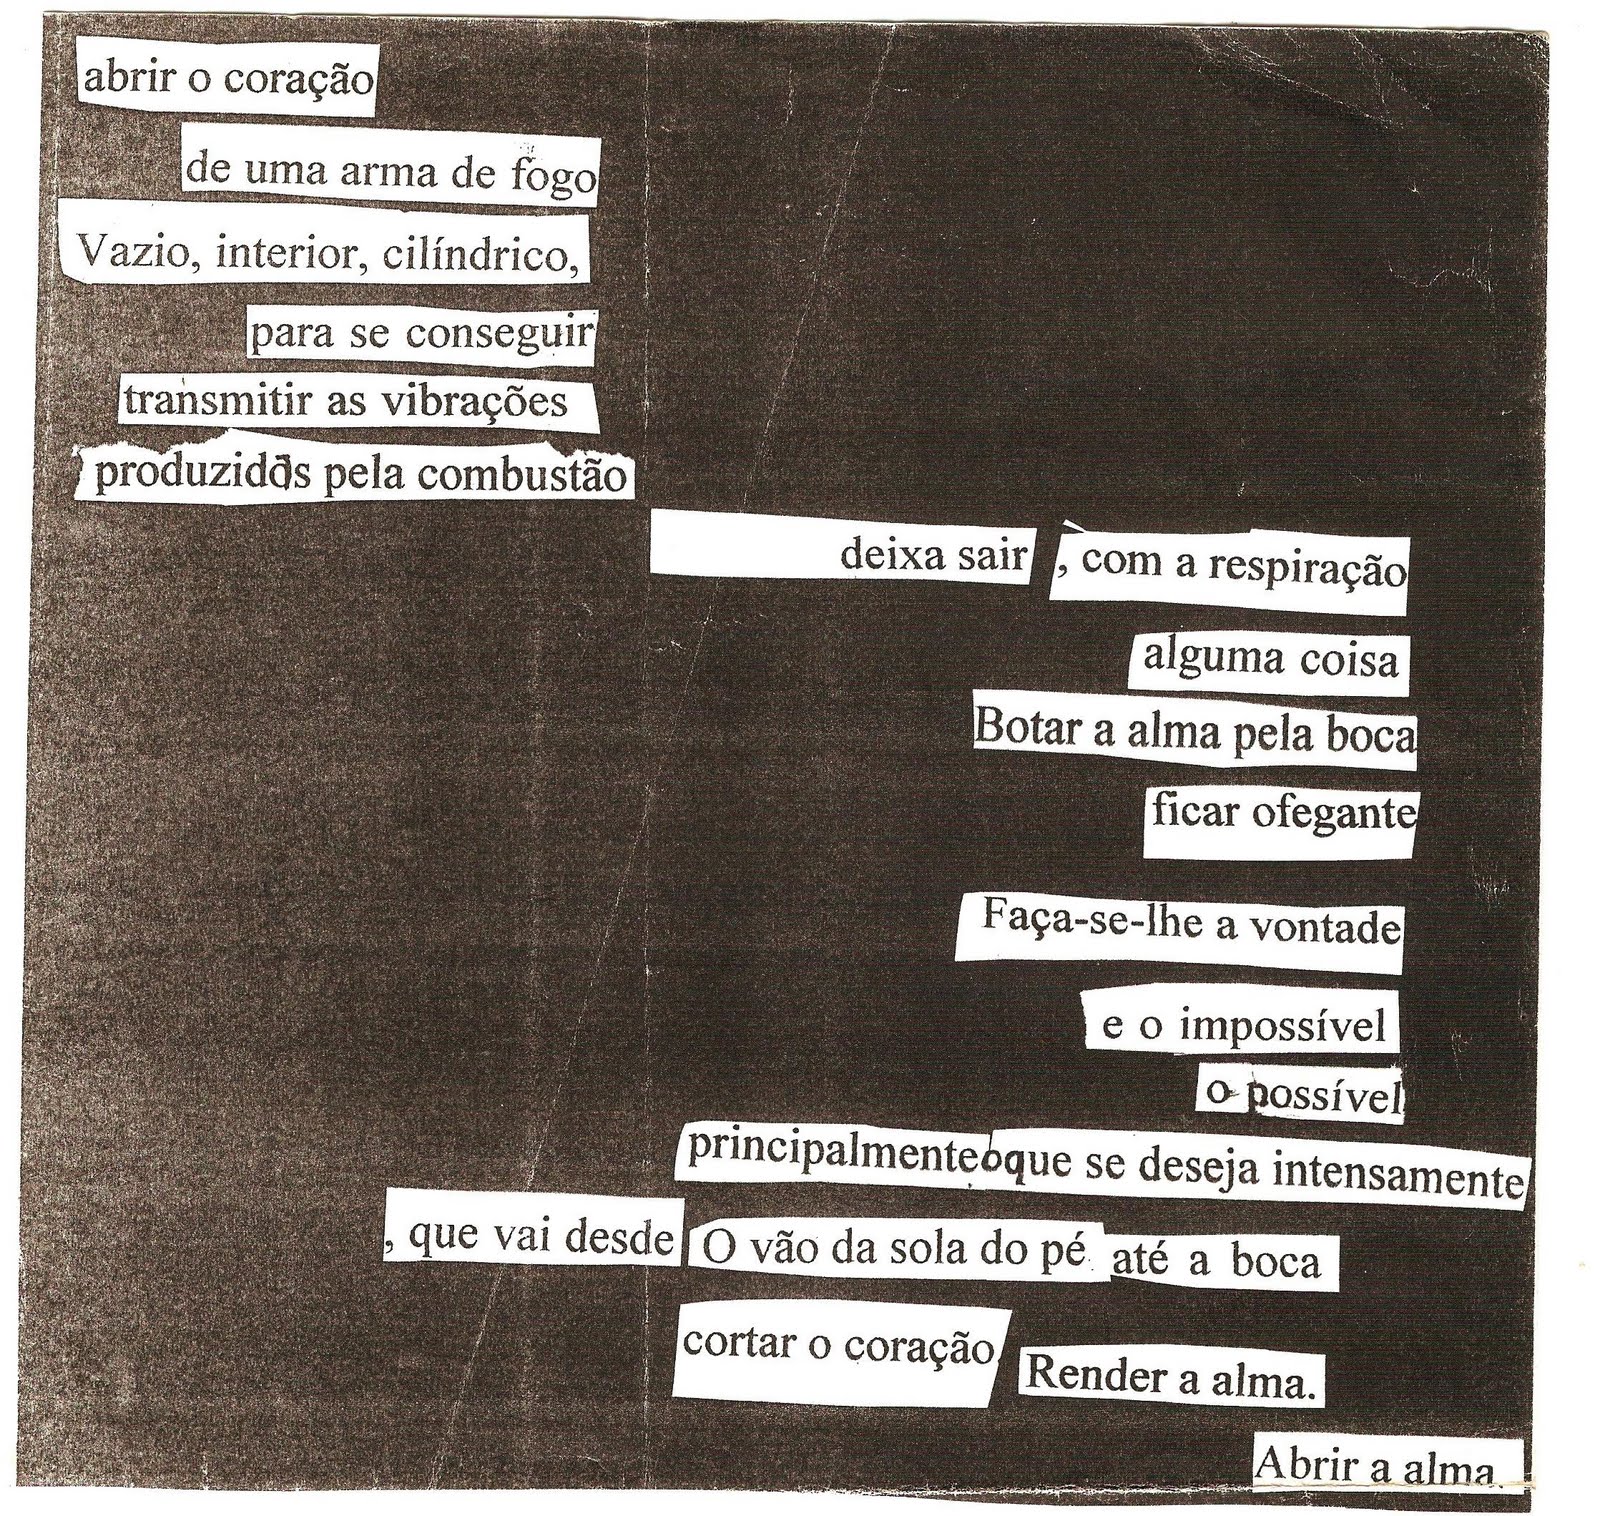 abrir o coração
de uma arma de fogo
Vazio, interior, cilíndrico,
para se conseguir
transmitir as vibrações
produzidos pela combustão
deixa sair , com a respiração
alguma coisa
Botar a alma pela boca
ficar ofegante
Faça-se-lhe a vontade
e o impossível
o possível
principalmente o que se deseja intensamente
, que vai desde O vão da sola do pé até a boca
cortar o coração Render a alma.
Abrir a alma.